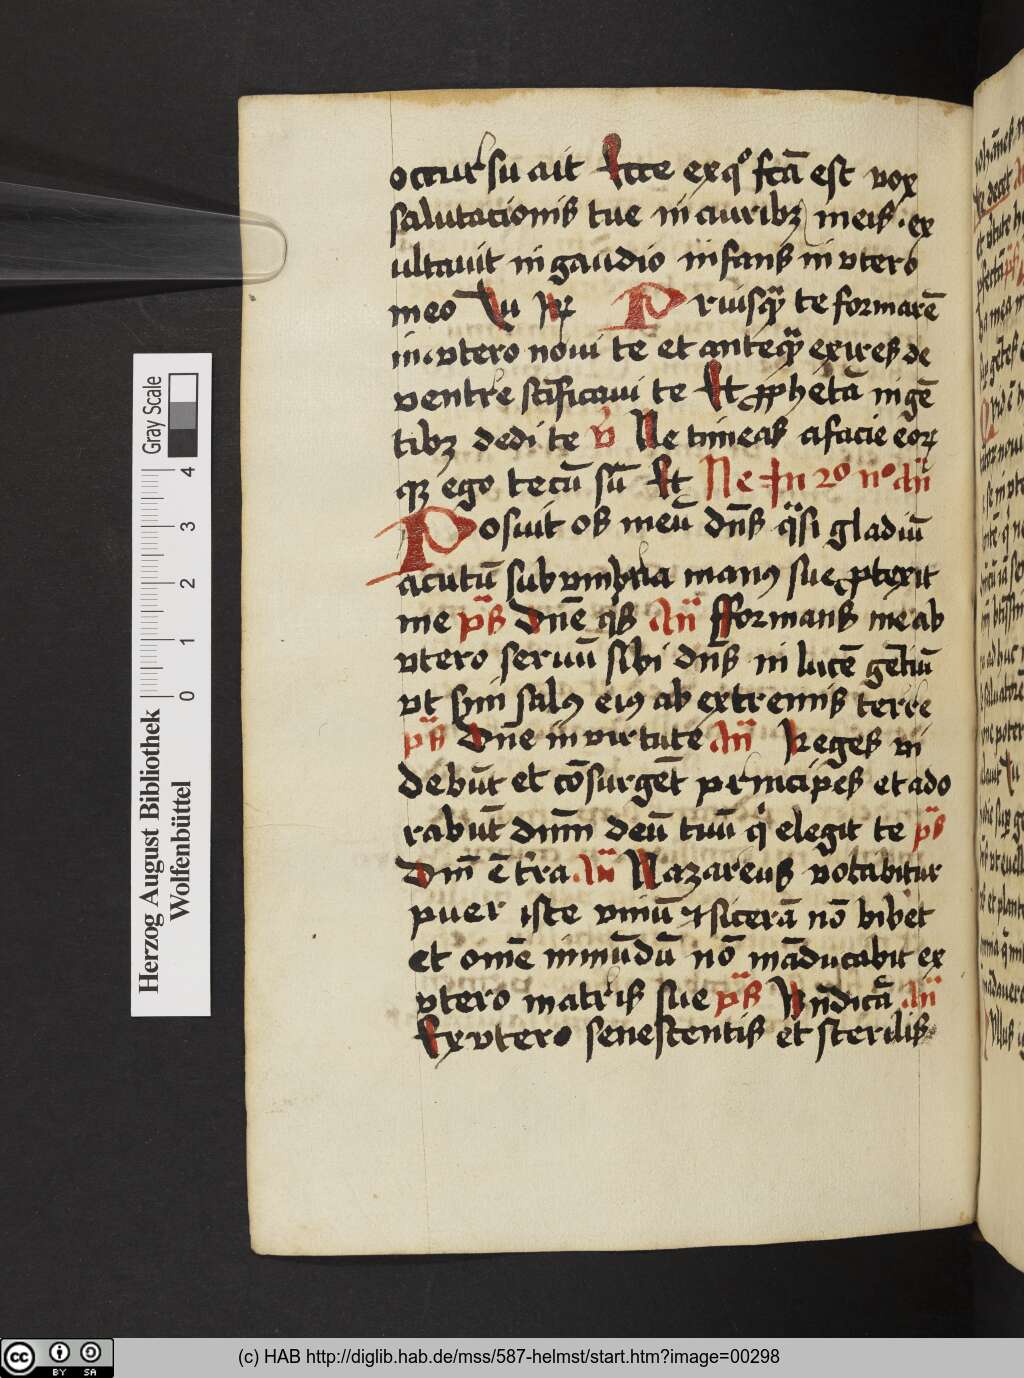 occursu ait Ecce ex qͦ fcā est vox
salutacionis tue in auribꝫ meis ex
ultauit in gaudio infans in vtero
meo Xu
Priusqͣꝫ te formarē
in vtero noui te et anteqͣꝫ exires de
ventre scīficaui te Et ꝓphetā in gē
tibꝫ dedi te v̉ Ne timeas a facie eoꝝ
qꝫ ego tecū sū Et Ne In 2º nº añ
Posuit os meū dn̄s qͣsi gladiū
acutū sub vmbra manꝯ sue ꝓtexit
me p̄s Dn̄e q̄s Añ Formans me ab
vtero seruū sibi dn̄s in lucē gēciū
vt sim salꝯ eiꝯ ab extremis terre
p̄s Dn̄e in virtute Añ Reges vi
debūt et cōsurgēt principes et ado
rabūt dnm̄ deū tuū qͥ elegit te p̄s
Dnī ē t̓ra Añ Nazareus vocabitur
puer iste vinū ⁊ sicerā nō bibet
et om̄e inmūdū nō māducabit ex
vtero matris sue p̄s
Ex vtero senescentis et sterilis
Herzog August Bibliothek
Wolfenbüttel
Gray Scale
0 1 2 3 4
(c) HAB http://diglib.hab.de/mss/587-helmst/start.htm?image=00298
cc BY SA